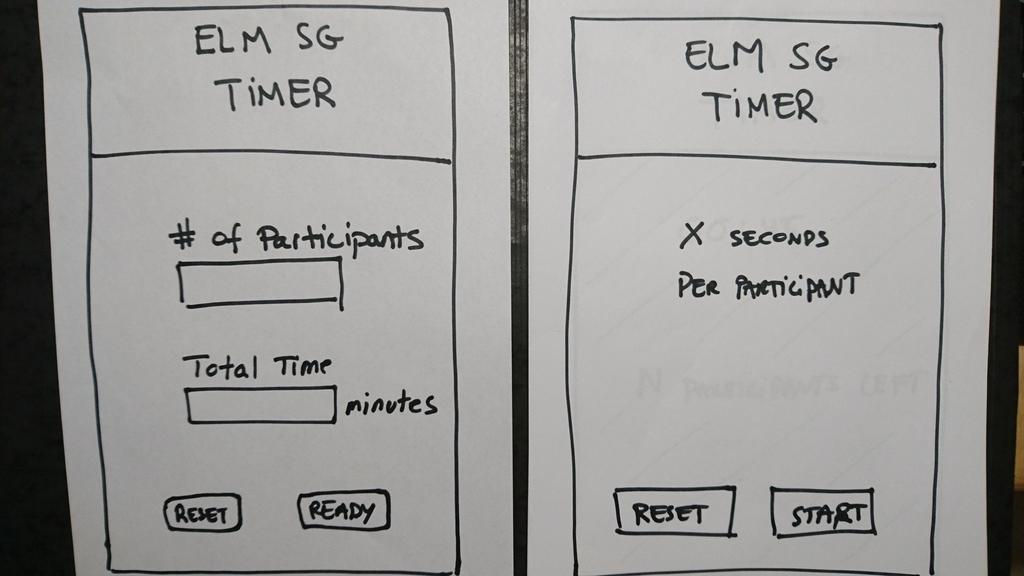 ELM SG
TIMER
# of Participants
Total Time
minutes
RESET
READY
ELM SG
TIMER
X SECONDS
PER PARTICIPANT
N PARTICIPANTS LEFT
RESET
START